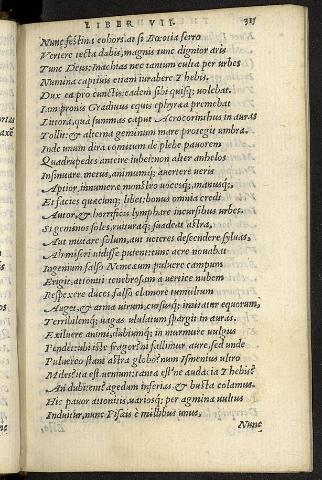 LIBER VII. 315
Nunc festina cohors. at si Bœotia ferro
Vertere tecta dabis, magnis tunc dignior aris
Tunc Deus; Inachias nec tantum culta per urbes
Numina captiuis etiam iurabere Thebis.
Dux ea pro cunctis: eadem sibi quisq; uolebat.
Iam pronis Gradiuus equis ephyræa premebat
Littora, qua summas caput Acrocorinthus in auras
Tollit: & alterna geminum mare protegit umbra.
Inde unum dira comitum de plebe pauorem
Quadrupedes anteire iubet: non alter anhelos
Insinuare metus, animumq; auertere ueris
Aptior. innumeræ monstro uocesq;, manusq;,
Et facies quæcunq; libet: bonus omnia credi
Autor, & horrificis lymphare incursibus urbes.
Si geminos soles, ruituraq; suadeat astra,
Aut mutare solum, aut ueteres descendere syluas,
Ah miseri uidisse putent: tunc acre nouabat
Ingenium: falso Nemeæum puluere campum
Erigit. attoniti tenebrosam a uertice nubem
Respexere duces. falso clamore tumultum
Auget: & arma uirum, cursusq; imitatur equorum,
Terribilemq; uagas ululatum spargit in auras.
Exiluere animi, dubiumq; in murmure uulgus
Pendet: ubi iste fragor? ni fallimur aure. sed unde
Puluereo stant astra globo? num Ismenius ultro
Miles? ita est. ueniunt: tanta est'ne audacia Thebis?
An dubitent? agedum inferias, & busta colamus.
Hæc pauor attonitis, uariosq; per agmina uultus
Induitur. nunc Pisæis è millibus unus,
Nunc